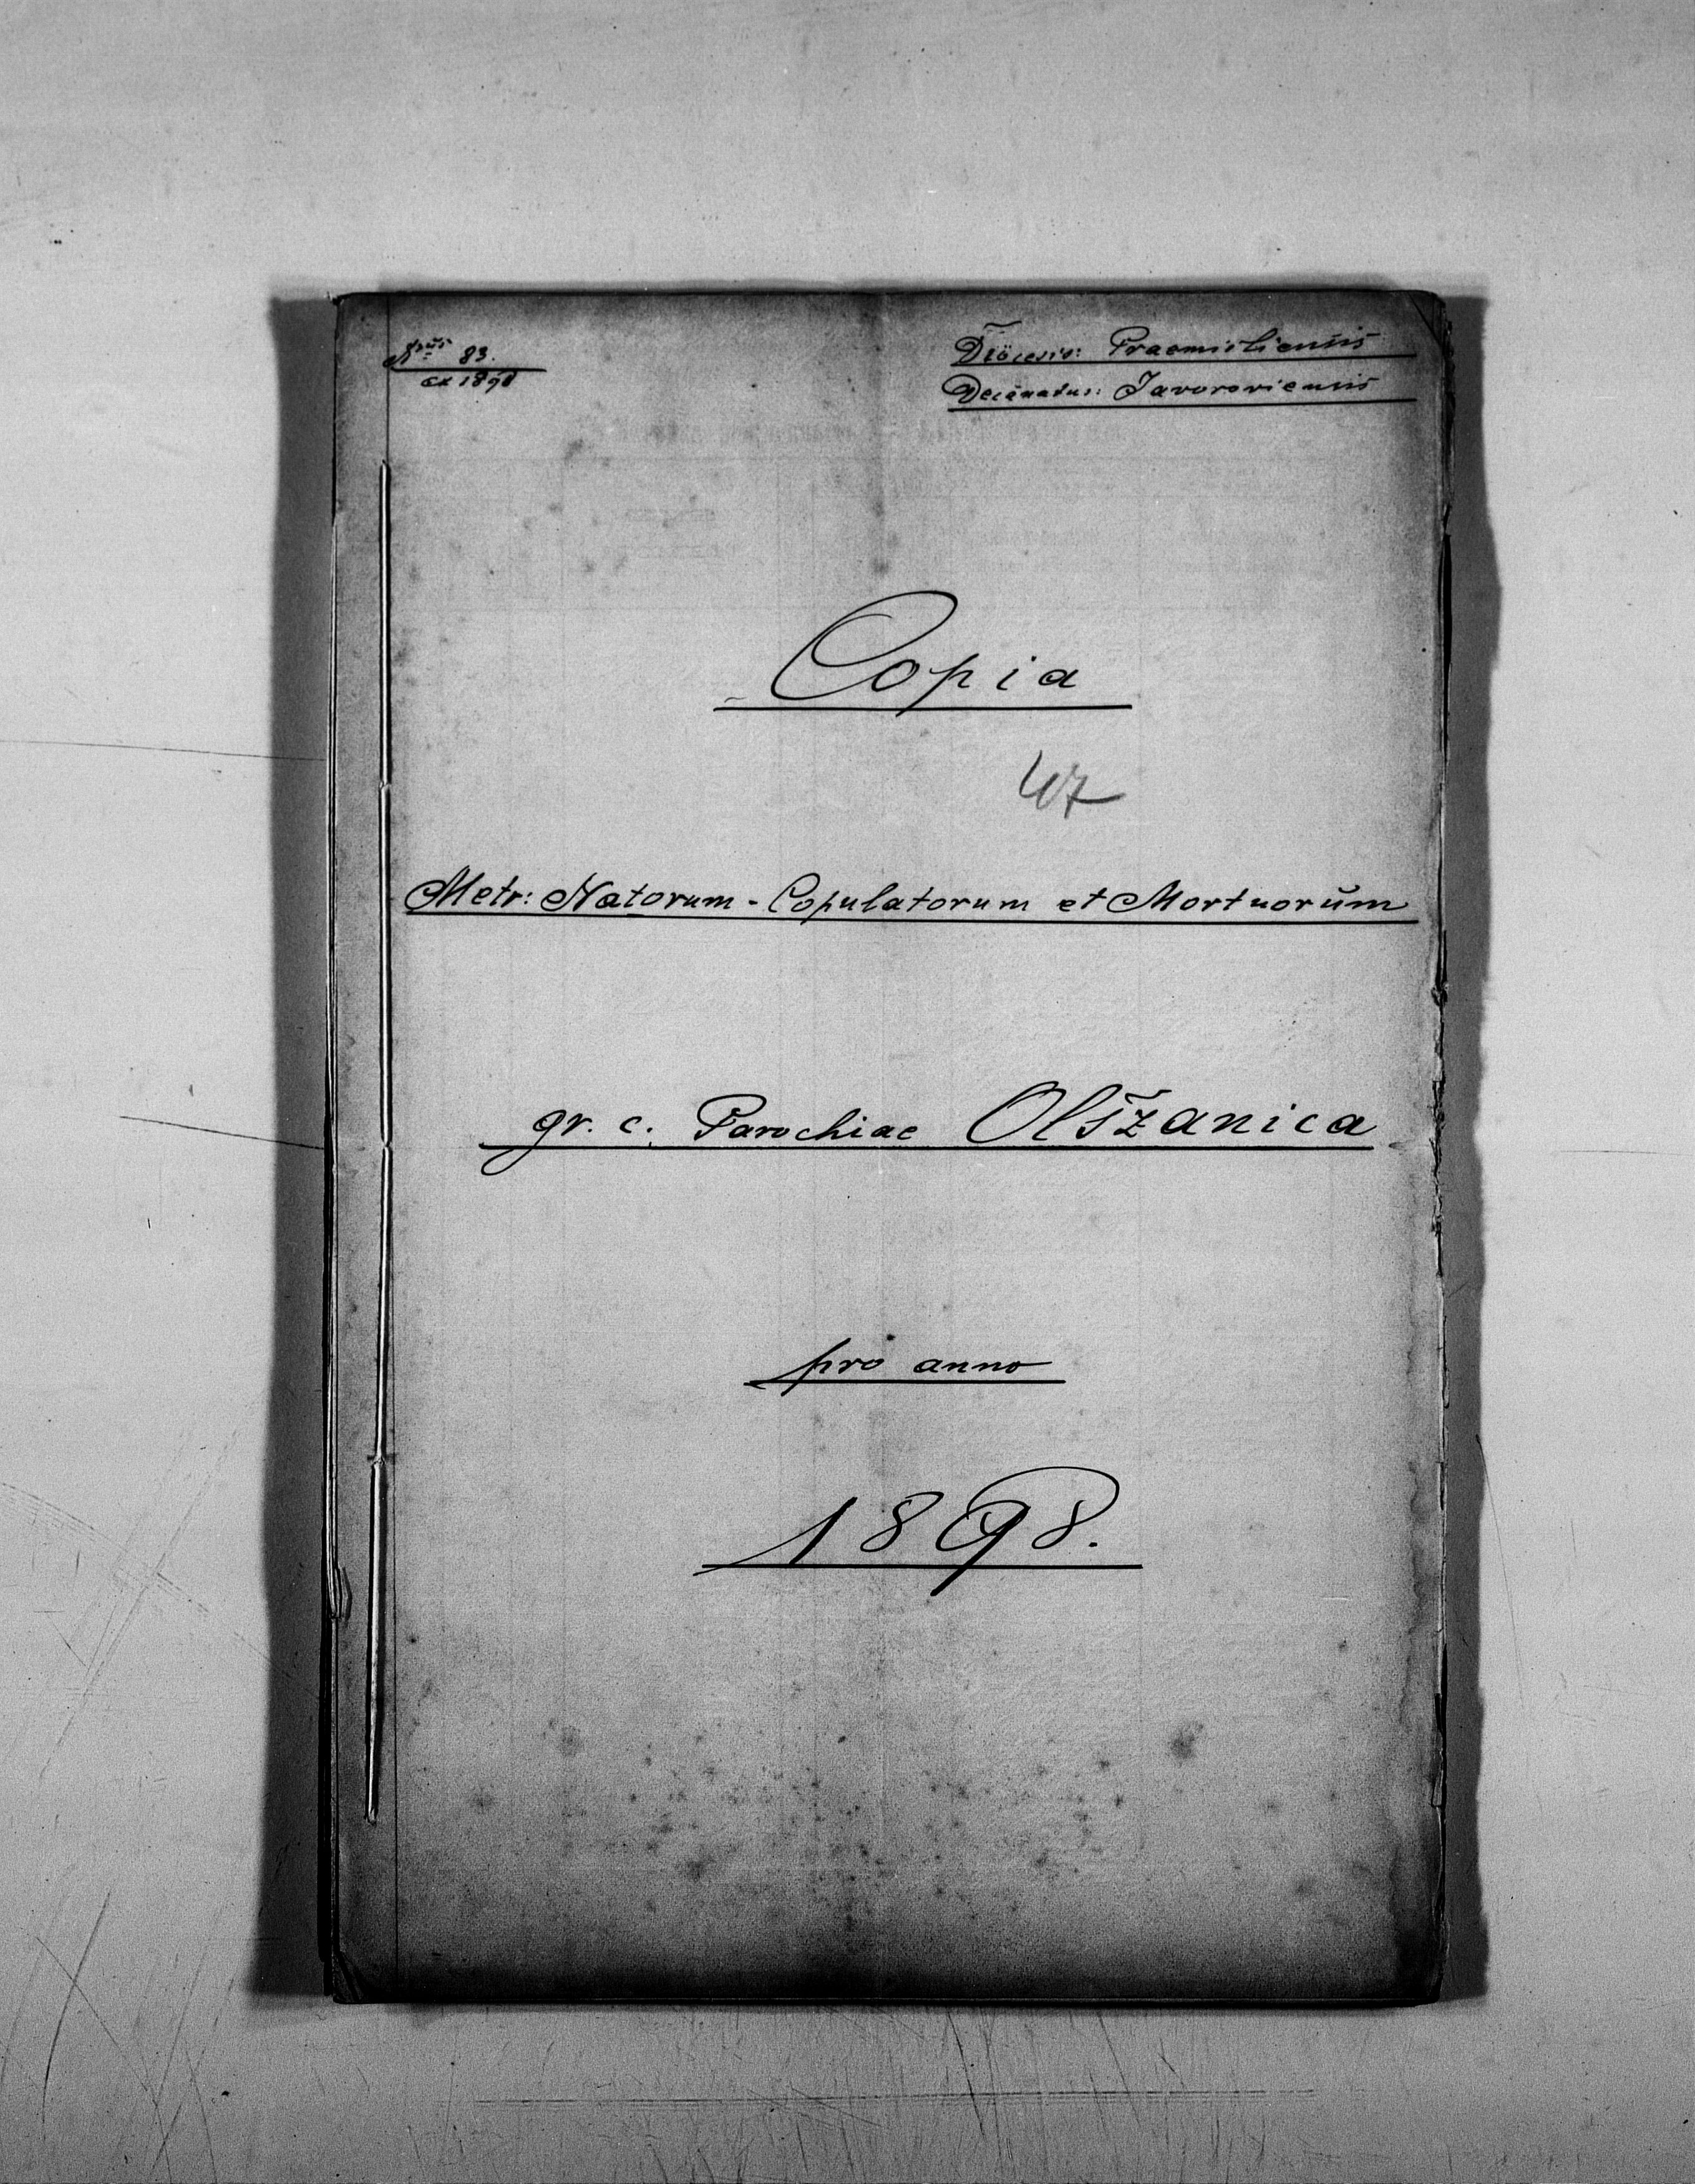 Nrus 83.
ex 1898
Diöcesis: Praemisliensis
Decanatus: Javoroviensis
Copia
47
Metr: Natorum - Copulatorum et Mortuorum
gr. c. Parochiae Olszanica
pro anno
1898.